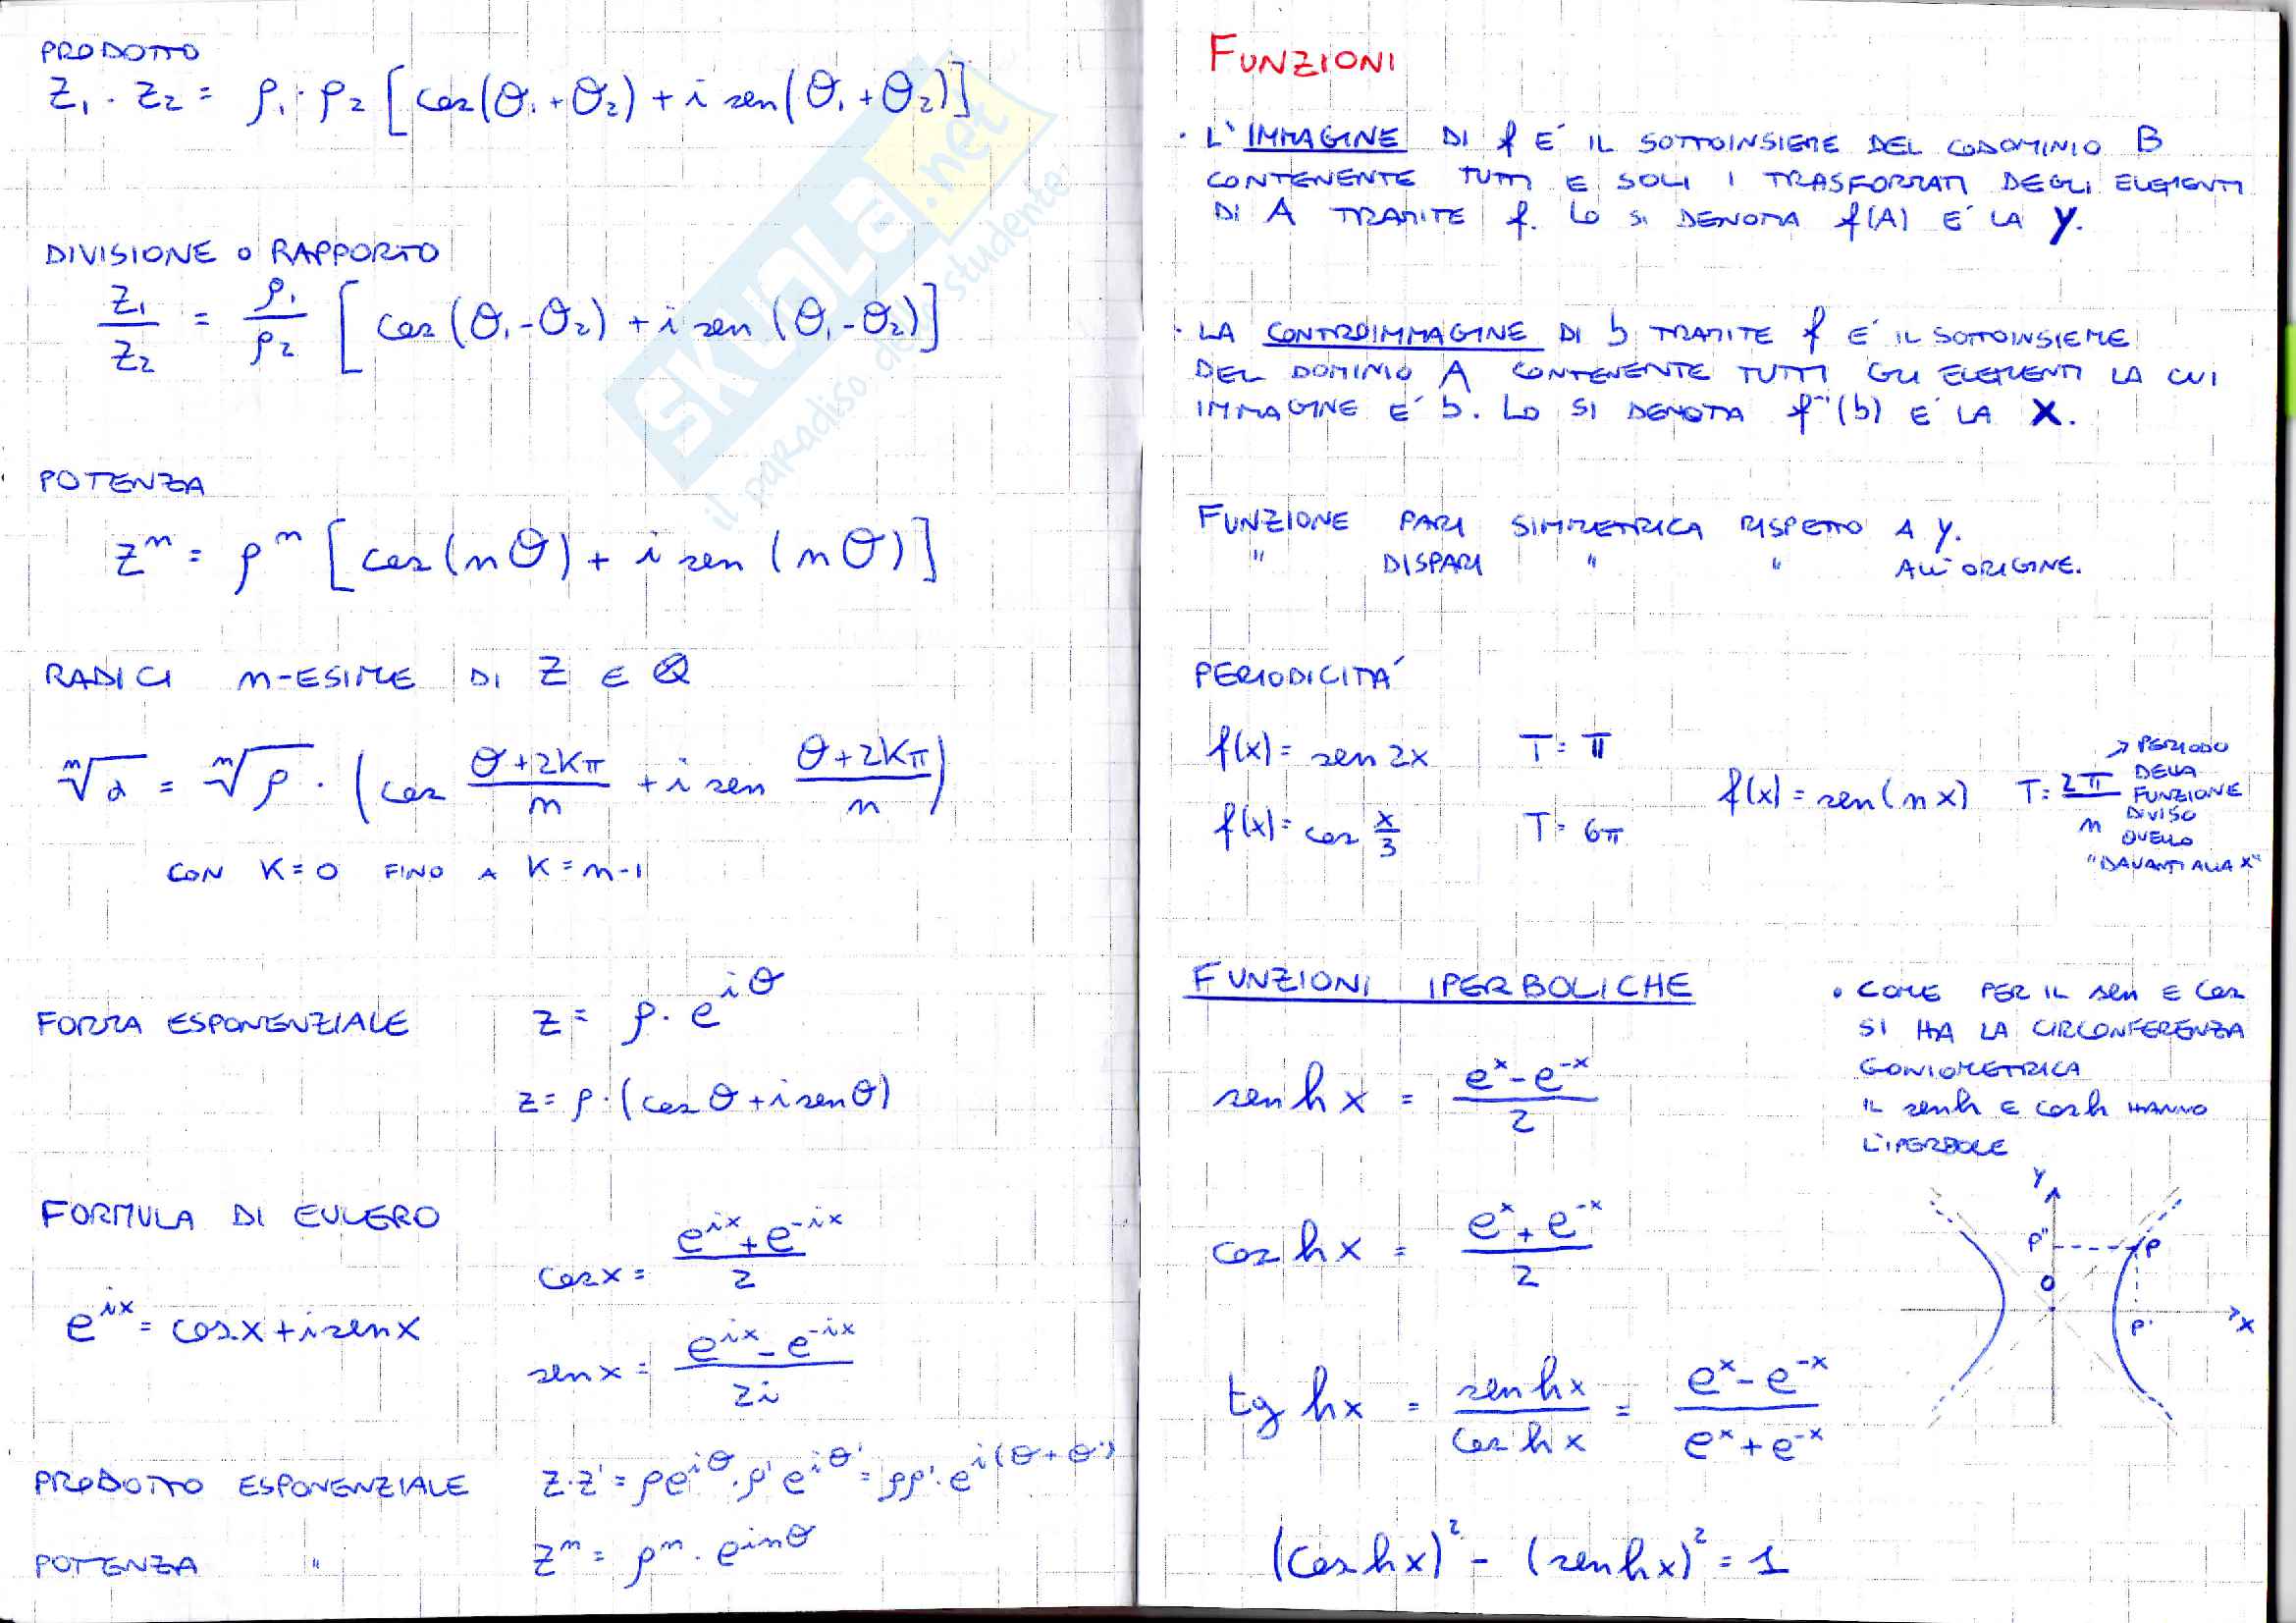 PRODOTTO
z₁ · z₂ = ρ₁ · ρ₂ [cos(θ₁ + θ₂) + i sen(θ₁ + θ₂)]
DIVISIONE O RAPPORTO
z₁/z₂ = ρ₁/ρ₂ [cos(θ₁ - θ₂) + i sen(θ₁ - θ₂)]
POTENZA
zⁿ = ρⁿ [cos(nθ) + i sen(nθ)]
RADICI n-ESIME DI Z E
ⁿ√α = ⁿ√ρ · (cos (θ+2kπ)/n + i sen (θ+2kπ)/n)
CON K=0 FINO A K=n-1
FORMA ESPONENZIALE z = ρ · e^{iθ}
z = ρ · (cos θ + i sen θ)
FORMULA DI EULERO
cos x = (e^{ix} + e^{-ix})/2
e^{ix} = cos x + i sen x
sen x = (e^{ix} - e^{-ix})/2i
PRODOTTO ESPONENZIALE z·z' = ρe^{iθ} · ρ'e^{iθ'} = ρρ' · e^{i(θ+θ')}
POTENZA " zⁿ = ρⁿ · e^{inθ}
FUNZIONI
· L'IMMAGINE DI f E' IL SOTTOINSIEME DEL CODOMINIO B
CONTENENTE TUTTI E SOLI I TRASFORMATI DEGLI ELEMENTI
DI A TRAMITE f. LO SI DENOTA f(A) E' LA Y.
· LA CONTROIMMAGINE DI b TRAMITE f E' IL SOTTOINSIEME
DEL DOMINIO A CONTENENTE TUTTI GLI ELEMENTI LA CUI
IMMAGINE E' b. LO SI DENOTA f⁻¹(b) E' LA X.
FUNZIONE PARI SIMMETRICA RISPETTO A Y.
" DISPARI " " ALL'ORIGINE.
PERIODICITA'
f(x) = sen 2x T = π
f(x) = cos x/3 T = 6π
f(x) = sen(nx) T = 2π/n
→ PERIODO
DELLA
FUNZIONE
DIVISO
QUELLO
"DAVANTI ALLA X"
FUNZIONI IPERBOLICHE
senh x = (e^x - e^{-x})/2
cosh x = (e^x + e^{-x})/2
tgh x = senh x/cosh x = (e^x - e^{-x})/(e^x + e^{-x})
(cosh x)² - (senh x)² = 1
• COME PER IL sen E cos
SI HA LA CIRCONFERENZA
GONIOMETRICA
IL senh E cosh HANNO
L'IPERBOLE
Y
P" P
O
P' X
SKUOLA.net
il paradiso dello studente